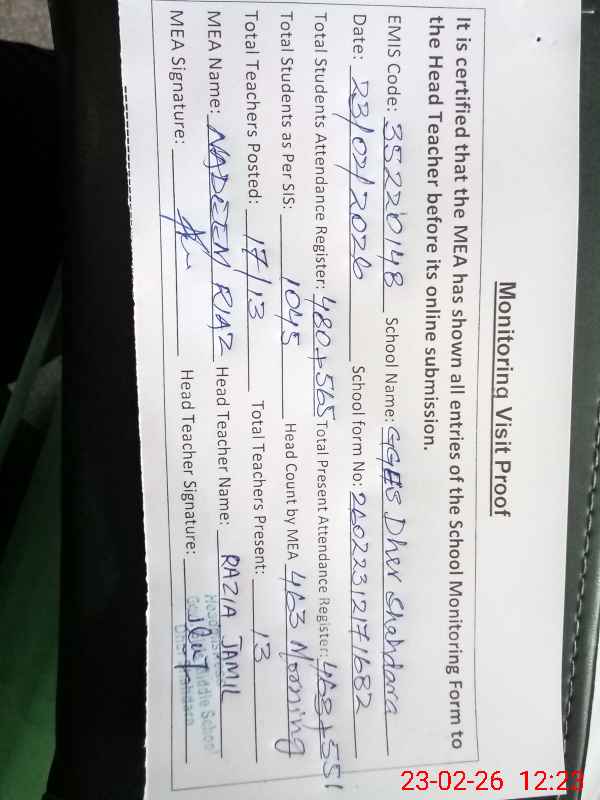 Monitoring Visit Proof
It is certified that the MEA has shown all entries of the School Monitoring Form to
the Head Teacher before its online submission.
EMIS Code: 35220148 School Name: GGES Dher Shahdara
Date: 23/02/2026 School form No: 2602231217 1682
Total Students Attendance Register: 480+565 Total Present Attendance Register: 468+551
Total Students as Per SIS: 1045 Head Count by MEA 463 Morning
Total Teachers Posted: 17/13 Total Teachers Present: 13
MEA Name: NADEEM RIAZ Head Teacher Name: RAZIA JAMIL
MEA Signature: Head Teacher Signature:
Middle School
23-02-26 12:23